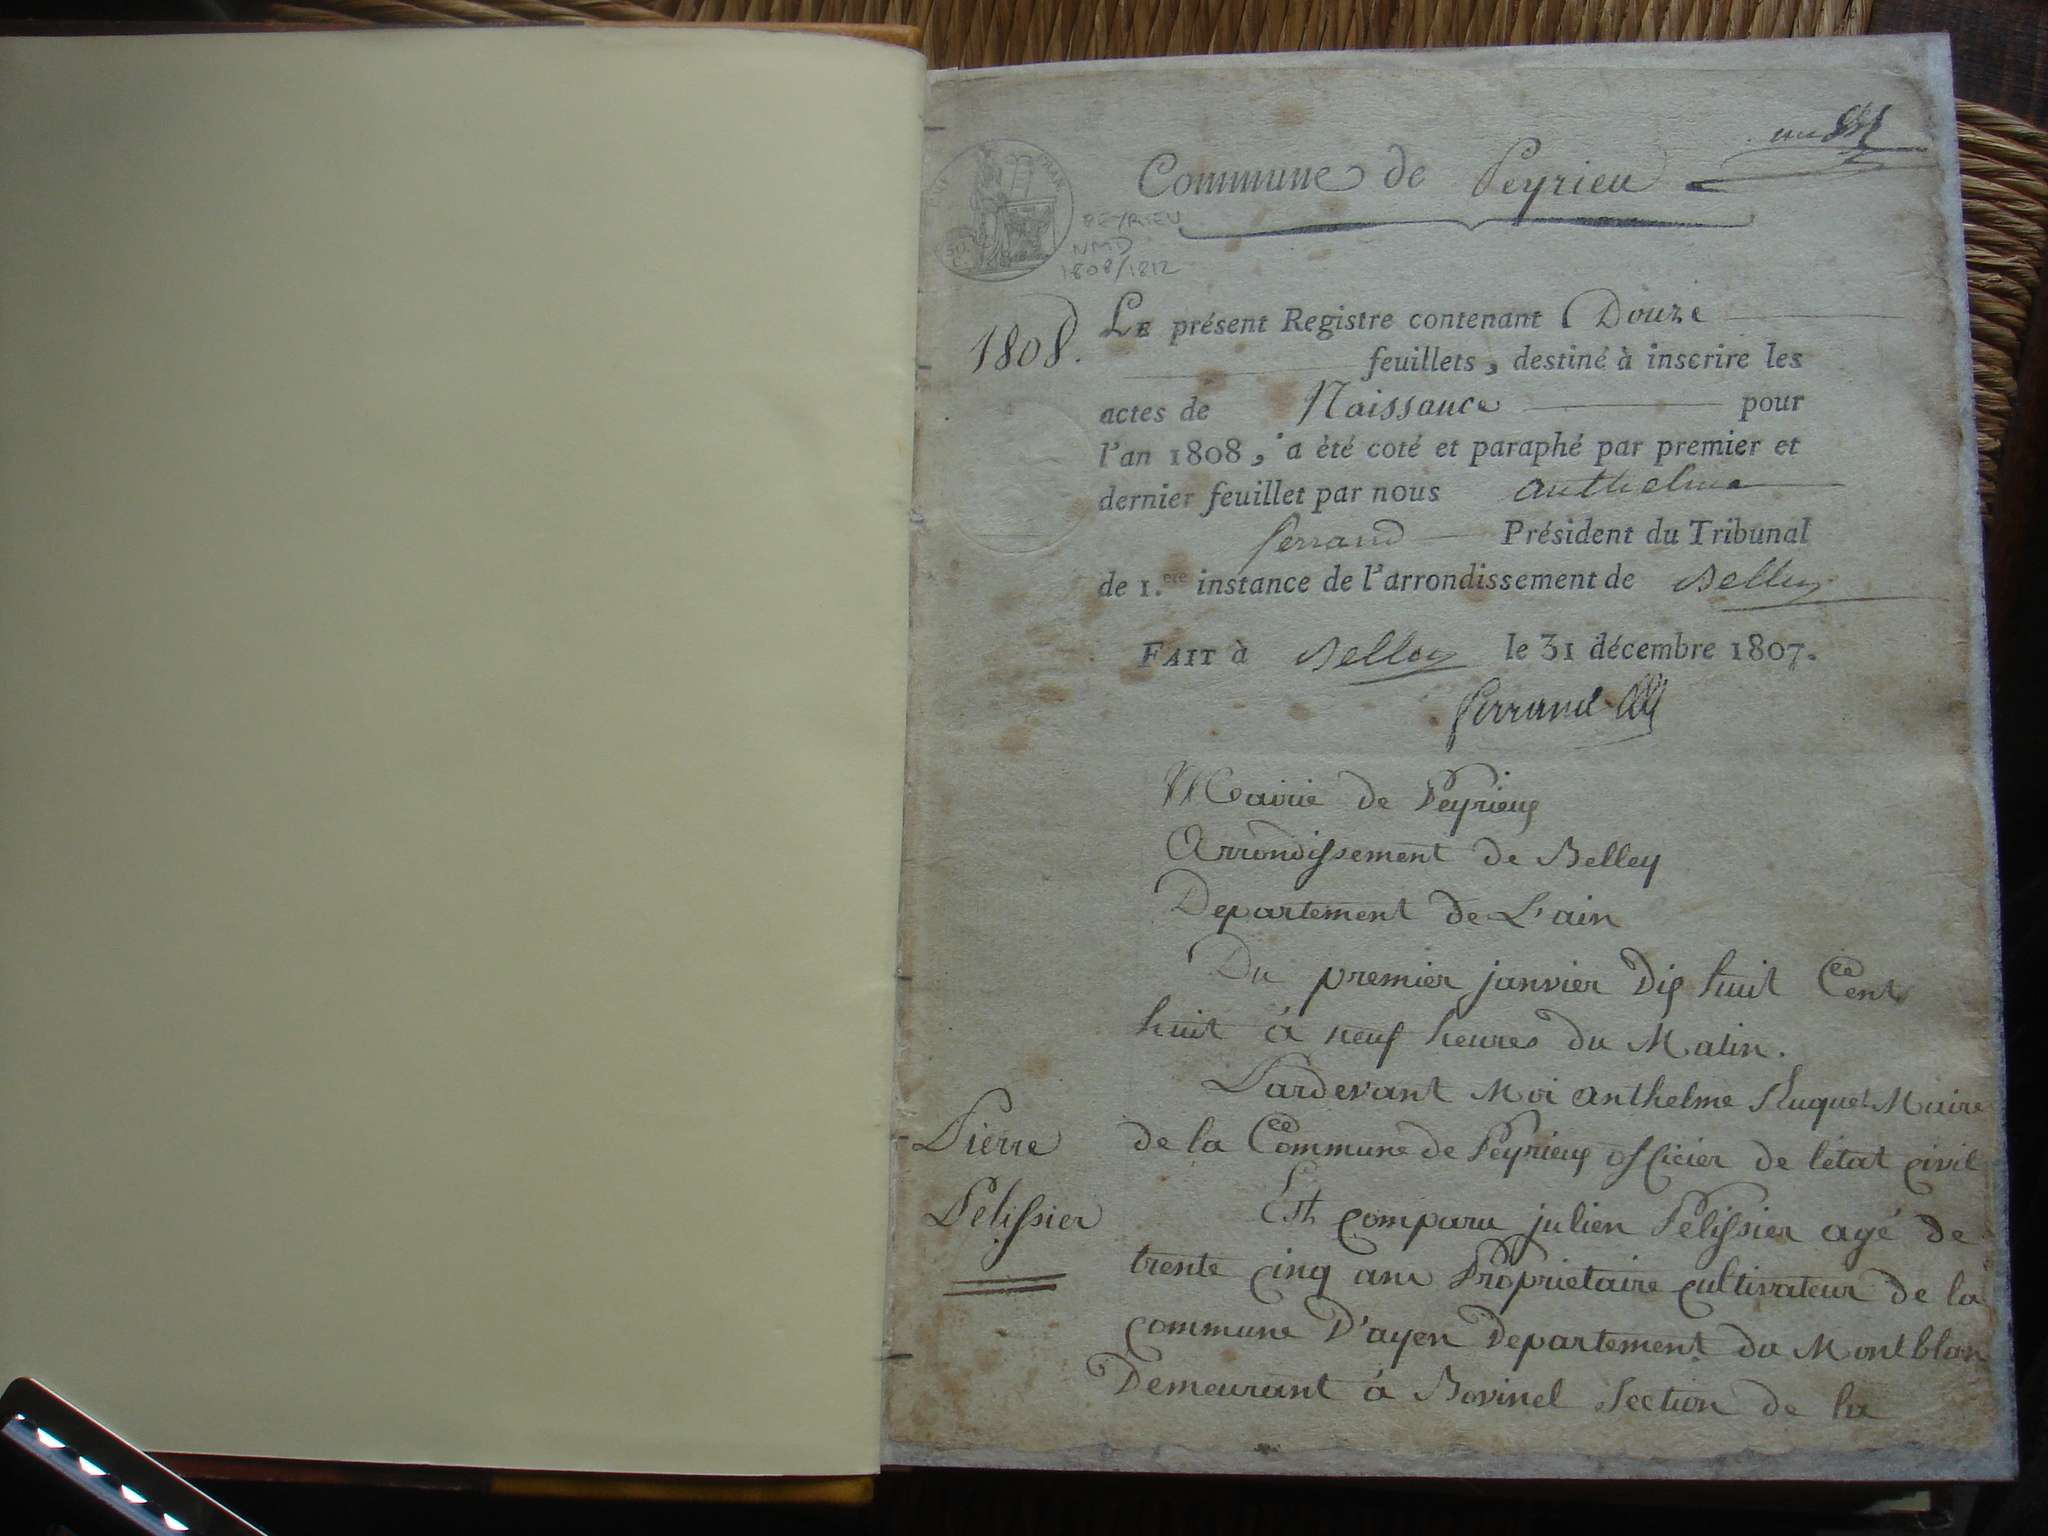 un
Commune de Peyrieu
PEYRIEU
NMD
1808/1812
1808.
LE présent Registre contenant Douze
feuillets, destiné à inscrire les
actes de Naissance pour
l'an 1808, a été coté et paraphé par premier et
dernier feuillet par nous anthelme
ferrand Président du Tribunal
de 1.ere instance de l'arrondissement de Belley
FAIT à Belley le 31 décembre 1807.
ferrand
Mairie de Peyrieux
Arrondissement de Belley
Departement de L'ain
Du premier janvier Dix huit Cent
huit à neuf heures du Matin.
Pardevant Moi anthelme Huguet Maire
de la Commune de Peyrieux officier de l'état civil
Pierre
Pelissier
Est comparu julien Pelissier agé de
trente cinq ans Proprietaire cultivateur de la
commune D'ayen Departement du Montblan
Demeurant à Bovinel Section de la